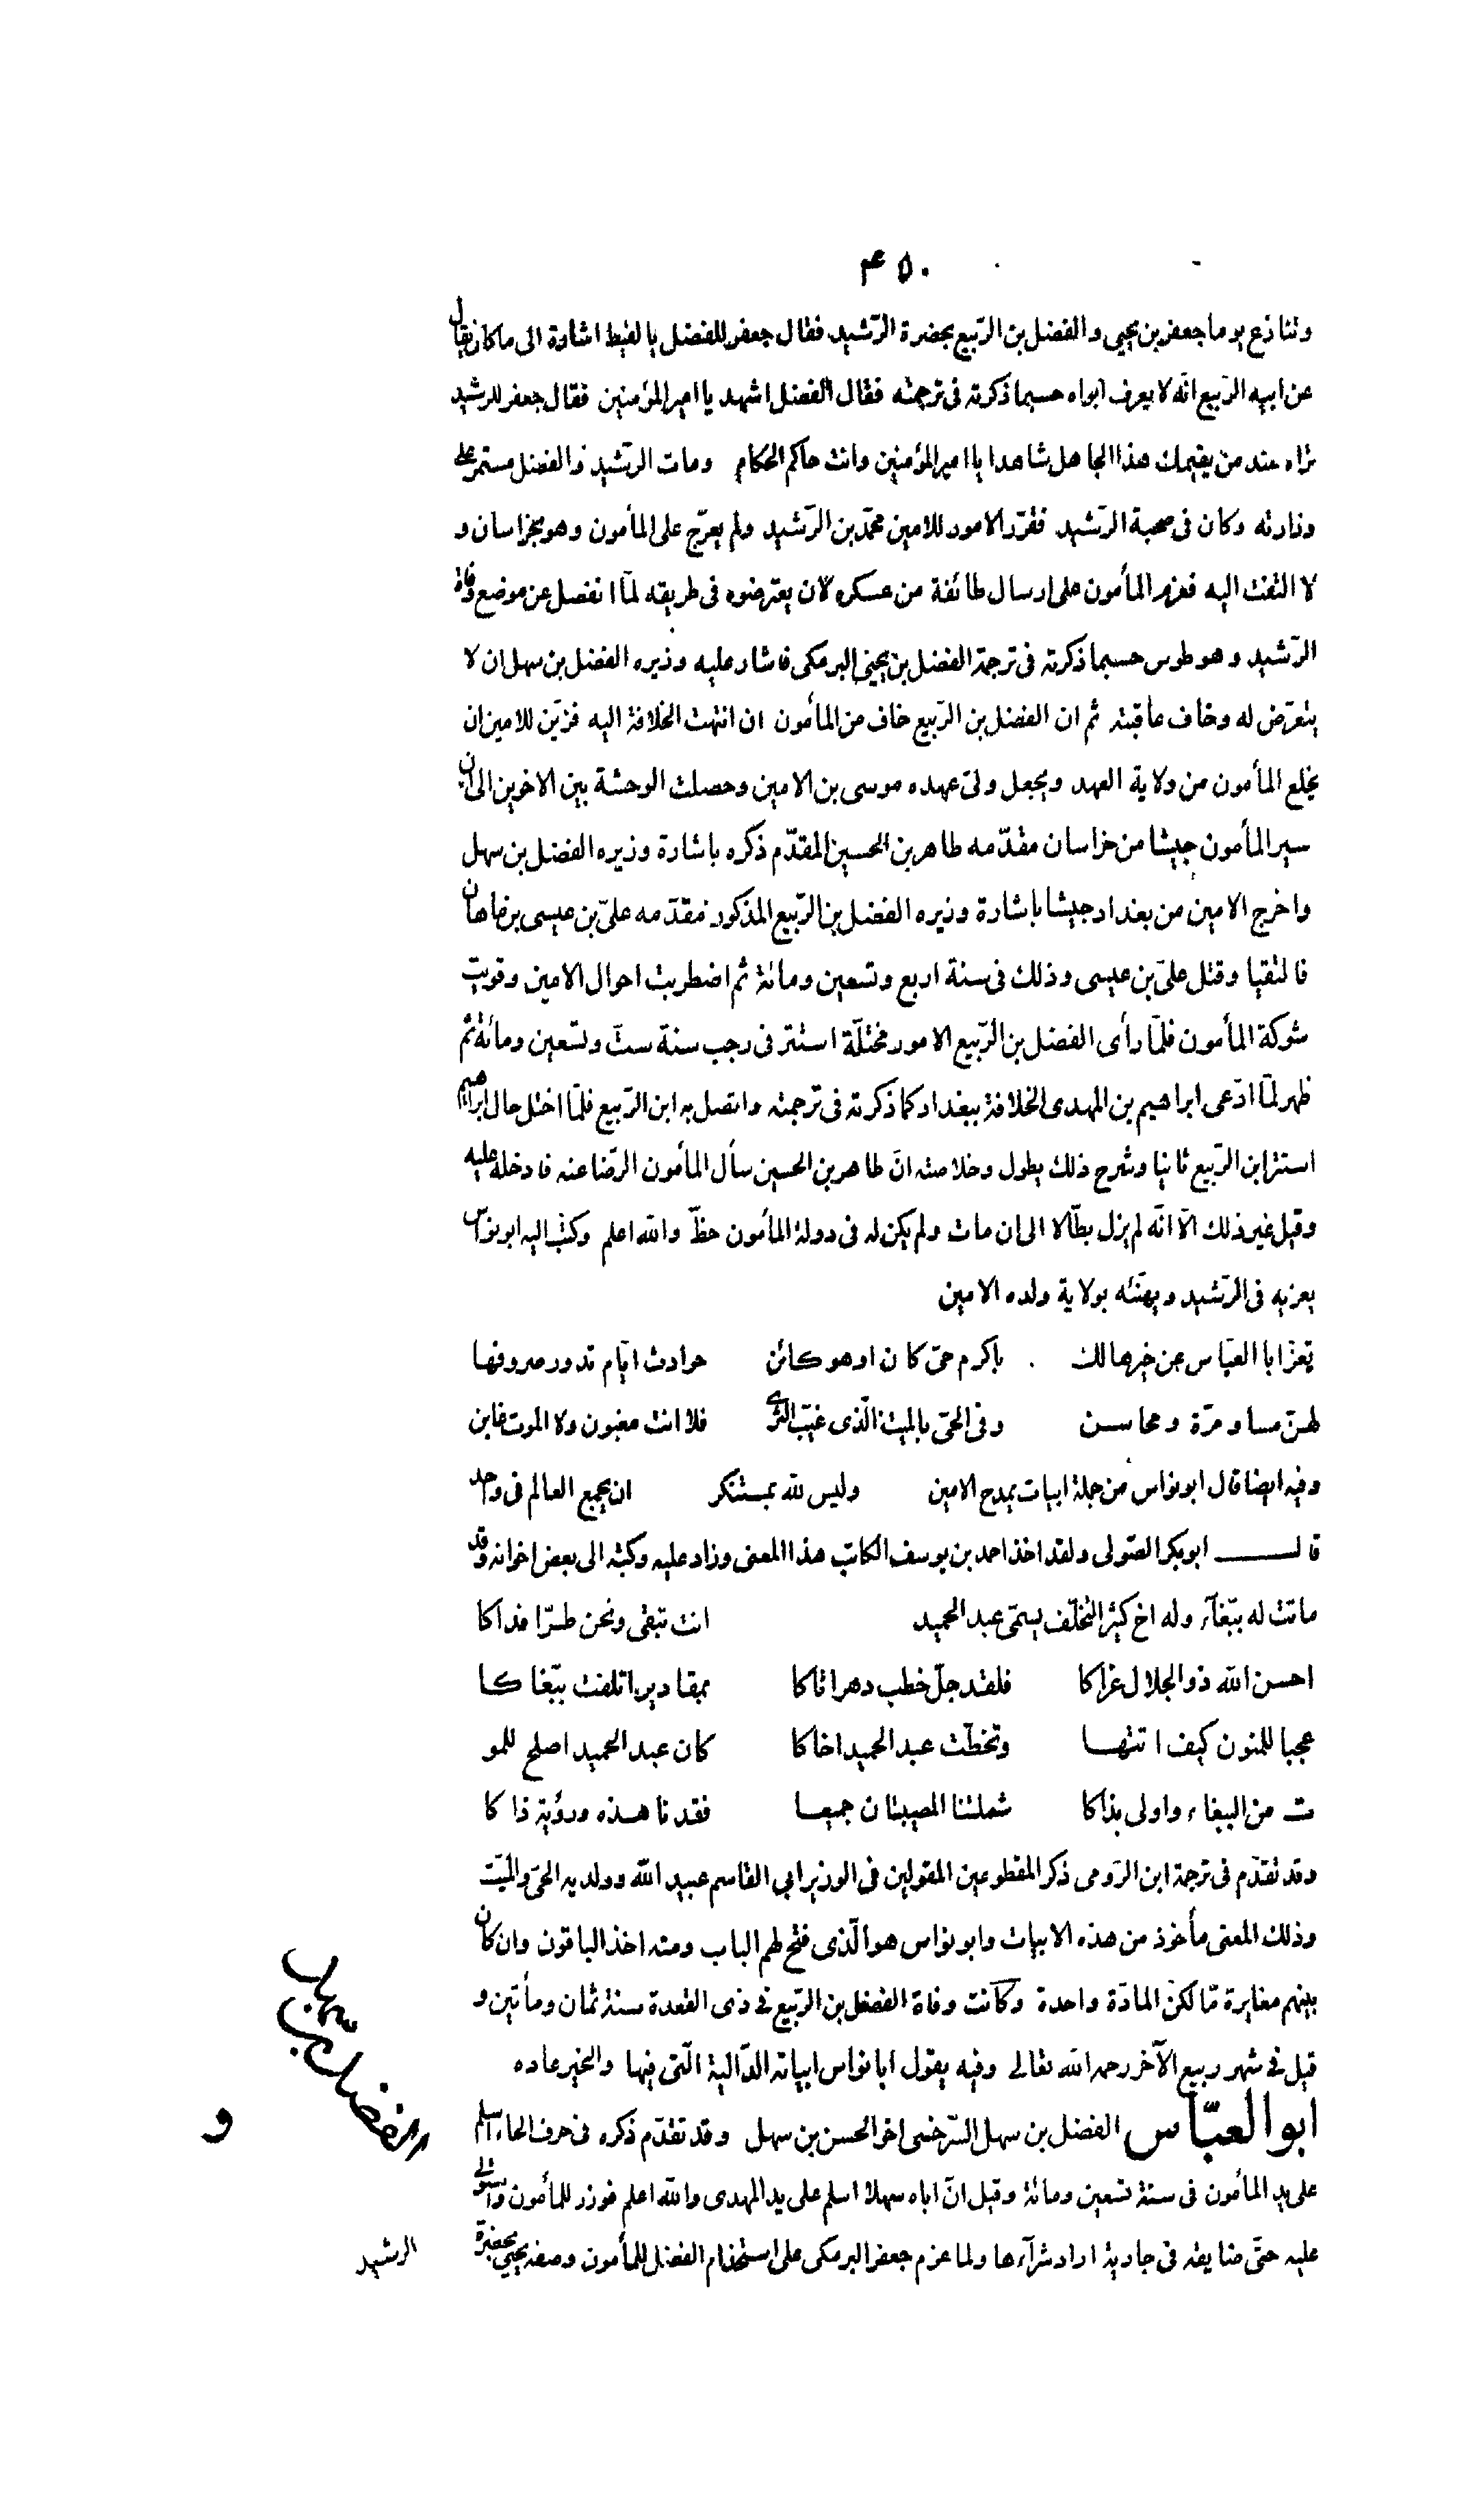 ٤٥٠
وتنازع يوما جعفر بن يحيى والفضل بن الربيع بحضرة الرّشيد فقال جعفر للفضل يا لقيط اشارة الى ما كان يقال
عن ابيه الرّبيع انّه لا يعرف ابواه حسبما ذكرته فى ترجمته فقال الفضل اشهد يا امير المؤمنين فقال جعفر للرشيد
تراه عند من يقيمك هذا الجاهل شاهدا يا امير المؤمنين وانت حاكم الحكام ومات الرّشيد والفضل مستمر على
وزارته وكان فى صحبة الرّشيد فقرّر الامور للامين محمّد بن الرّشيد ولم يعرّج على المأمون وهو بخراسان و
لا التفت اليه فعزم المأمون على ارسال طائفة من عسكره لان يعترضوه فى طريقه لمّا انفصل عن موضع وفاة
الرّشيد وهو طوس حسبما ذكرته فى ترجمة الفضل بن يحيى البرمكى فاشار عليه وزيره الفضل بن سهل ان لا
يتعرّض له وخاف عاقبته ثم ان الفضل بن الرّبيع خاف من المأمون ان انتهت الخلافة اليه فزيّن للامين ان
يخلع المأمون من ولاية العهد ويجعل ولىّ عهده موسى بن الامين وحصلت الوحشة بين الاخوين الى ان
سير المأمون جيشا من خراسان مقدّمه طاهر بن الحسين المقدّم ذكره باشارة وزيره الفضل بن سهل
واخرج الامين من بغداد جيشا باشارة وزيره الفضل بن الرّبيع المذكور مقدّمه علىّ بن عيسى بن ماهان
فالتقيا وقتل علىّ بن عيسى وذلك فى سنة اربع وتسعين ومائة ثم اضطربت احوال الامين وقويت
شوكة المأمون فلمّا رأى الفضل بن الرّبيع الامور مختلّة استتر فى رجب سنة ستّ وتسعين ومائة ثم
ظهر لمّا ادّعى ابراهيم بن المهدى الخلافة ببغداد كما ذكرته فى ترجمته واتصل به ابن الرّبيع فلمّا اختل حال ابراهيم
استتر ابن الرّبيع ثانيا وشرح ذلك يطول وخلاصته انّ طاهر بن الحسين سأل المأمون الرّضا عنه فادخله عليه
وقيل غير ذلك الّا انّه لم يزل بطّالا الى ان مات ولم يكن له فى دولة المأمون حظّ والله اعلم وكتب اليه ابو نواس
يعزيه فى الرّشيد ويهنّئه بولاية ولده الامين
تعزّ ابا العبّاس عن خير هالك باكرم حىّ كان او هو كائن حوادث ايّام تدور صروفها
لهنّ مساو مرّة ومحاسن وفى الحىّ بالميت الّذى غيّب الثرى فلا انت مغبون ولا الموت غابن
وفيه ايضا قال ابو نواس من جملة ابيات يمدح الامين وليس لله بمستنكر ان يجمع العالم فى واحد
قال ابو بكر الصّولى ولقد اخذ احمد بن يوسف الكاتب هذا المعنى وزاد عليه وكتبه الى بعض اخوانه وقد
ماتت له ببّغآء وله اخ كثير التخلّف يسمّى عبد الحميد انت تبقى ونحن طرّا فداكا
احسن الله ذو الجلال عزاكا فلقد جلّ خطب دهر اتاكا بمقادير اتلفت ببّغاكا
عجبا للمنون كيف اتتها وتخطّت عبد الحميد اخاكا كان عبد الحميد اصلح للمو
ت من الببغاء واولى بذاكا شملتنا المصيبتان جميعا فقدنا هذه ورؤية ذاكا
وقد تقدّم فى ترجمة ابن الرّومى ذكر المقطوعين المقولين فى الوزير ابى القاسم عبيد الله وولديه الحىّ والميّت
وذلك المعنى مأخوذ من هذه الابيات وابو نواس هو الّذى فتح لهم الباب ومنه اخذ الباقون وان كان
بينهم مغايرة مّا لكنّ المادّة واحدة وكانت وفاة الفضل بن الرّبيع فى ذى القعدة سنة ثمان ومأتين و
قيل فى شهر ربيع الآخر رحمه الله تعالى وفيه يقول ابا نواس ابياته الدّالية الّتى فيها والخير عاده
ابو العبّاس الفضل بن سهل السّرخسى اخو الحسن بن سهل وقد تقدّم ذكره فى حرف الحاء اسلم
على يد المأمون فى سنة تسعين ومائة وقيل انّ اباه سهلا اسلم على يد المهدى والله اعلم فوزر للمأمون واستولى
عليه حتّى ضايقه فى جارية اراد شرآءها ولما عزم جعفر البرمكى على استخدام الفضل للمأمون وصفه يحيى بحضرة
الرشيد
الفضل بن سهل
و